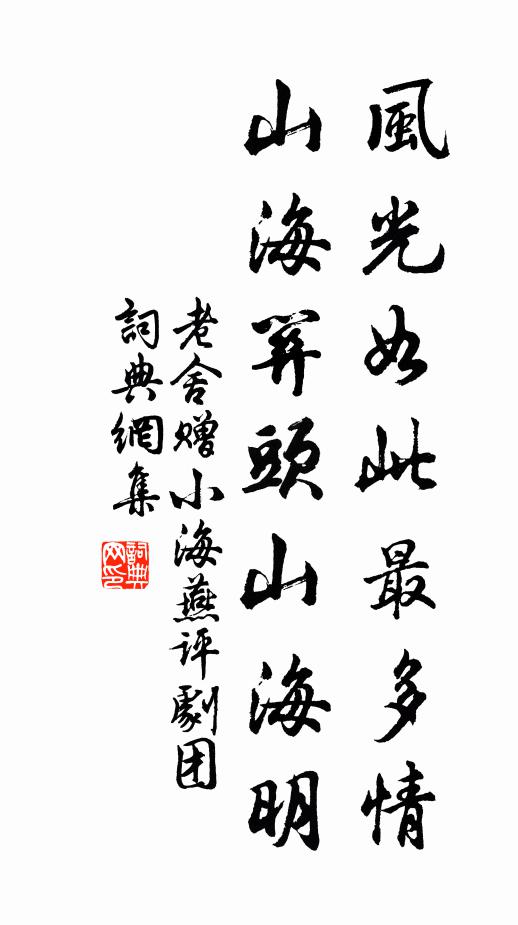 風光如此最多情
山海關頭山海明
老舍赠小海燕评劇团
詞典網集
詞典网印